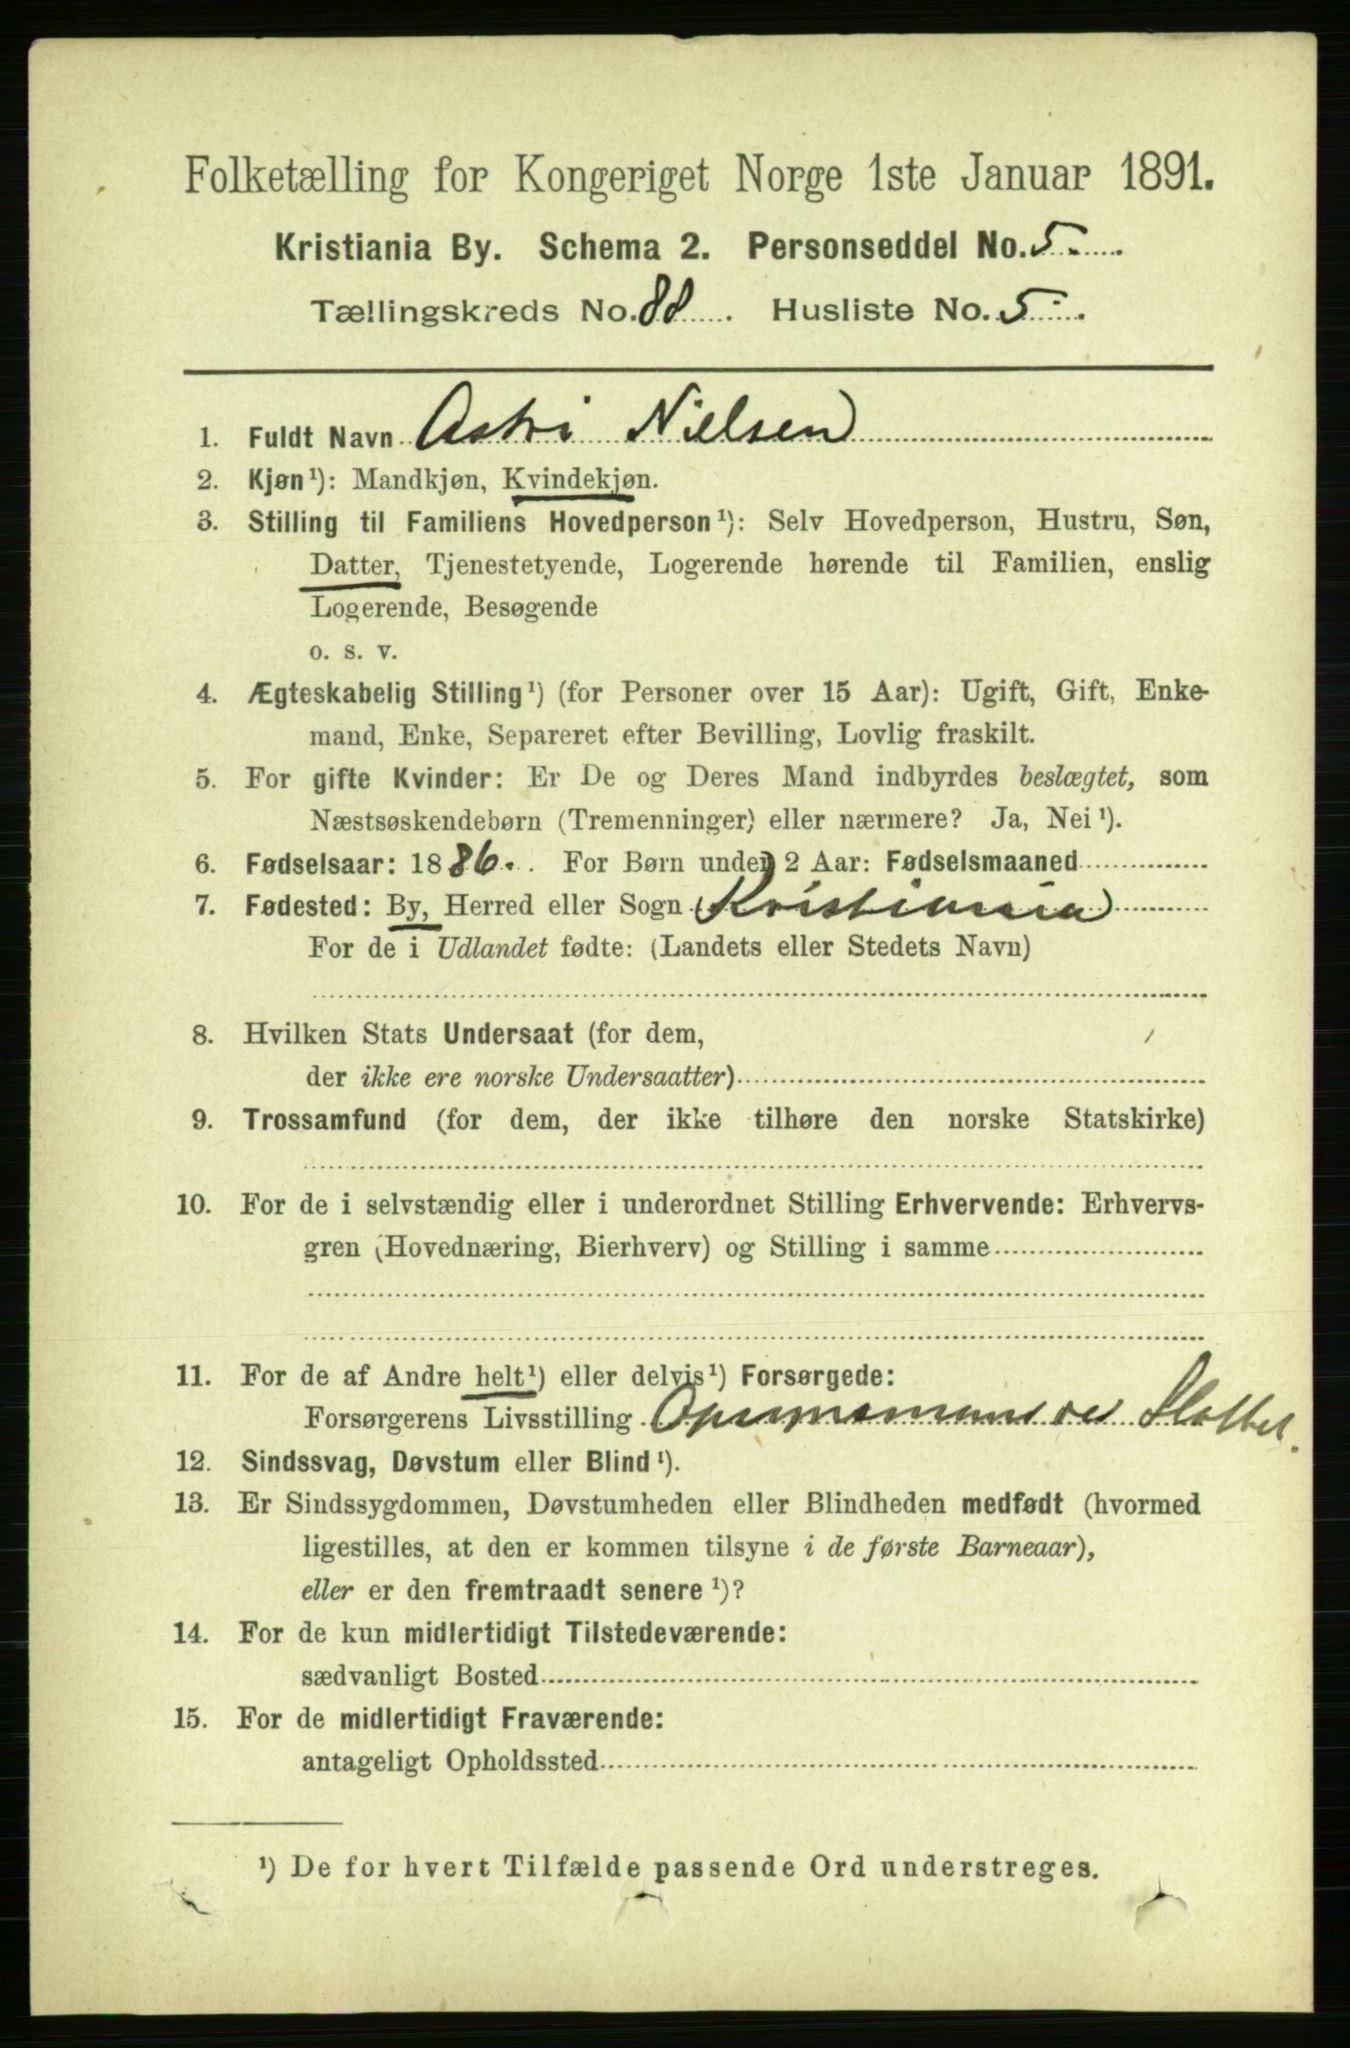 Folketælling for Kongeriget Norge 1ste Januar 1891.
Kristiania By. Schema 2. Personseddel No. 5.
Tællingskreds No. 88. Husliste No. 5.
1. Fuldt Navn Astri Nielsen
2. Kjøn¹): Mandkjøn, Kvindekjøn.
3. Stilling til Familiens Hovedperson¹): Selv Hovedperson, Hustru, Søn,
Datter, Tjenestetyende, Logerende hørende til Familien, enslig
Logerende, Besøgende
o. s. v.
4. Ægteskabelig Stilling¹) (for Personer over 15 Aar): Ugift, Gift, Enke-
mand, Enke, Separeret efter Bevilling, Lovlig fraskilt.
5. For gifte Kvinder: Er De og Deres Mand indbyrdes beslægtet, som
Næstsøskendebørn (Tremenninger) eller nærmere? Ja, Nei¹).
6. Fødselsaar: 1886. For Børn under 2 Aar: Fødselsmaaned
7. Fødested: By, Herred eller Sogn Kristiania
For de i Udlandet fødte: (Landets eller Stedets Navn)
8. Hvilken Stats Undersaat (for dem,
der ikke ere norske Undersaatter)
9. Trossamfund (for dem, der ikke tilhøre den norske Statskirke)
10. For de i selvstændig eller i underordnet Stilling Erhvervende: Erhvervs-
gren (Hovednæring, Bierhverv) og Stilling i samme
11. For de af Andre helt¹) eller delvis¹) Forsørgede:
Forsørgerens Livsstilling
12. Sindssvag, Døvstum eller Blind¹).
13. Er Sindssygdommen, Døvstumheden eller Blindheden medfødt (hvormed
ligestilles, at den er kommen tilsyne i de første Barneaar),
eller er den fremtraadt senere¹)?
14. For de kun midlertidigt Tilstedeværende:
sædvanligt Bosted
15. For de midlertidigt Fraværende:
antageligt Opholdssted
¹) De for hvert Tilfælde passende Ord understreges.